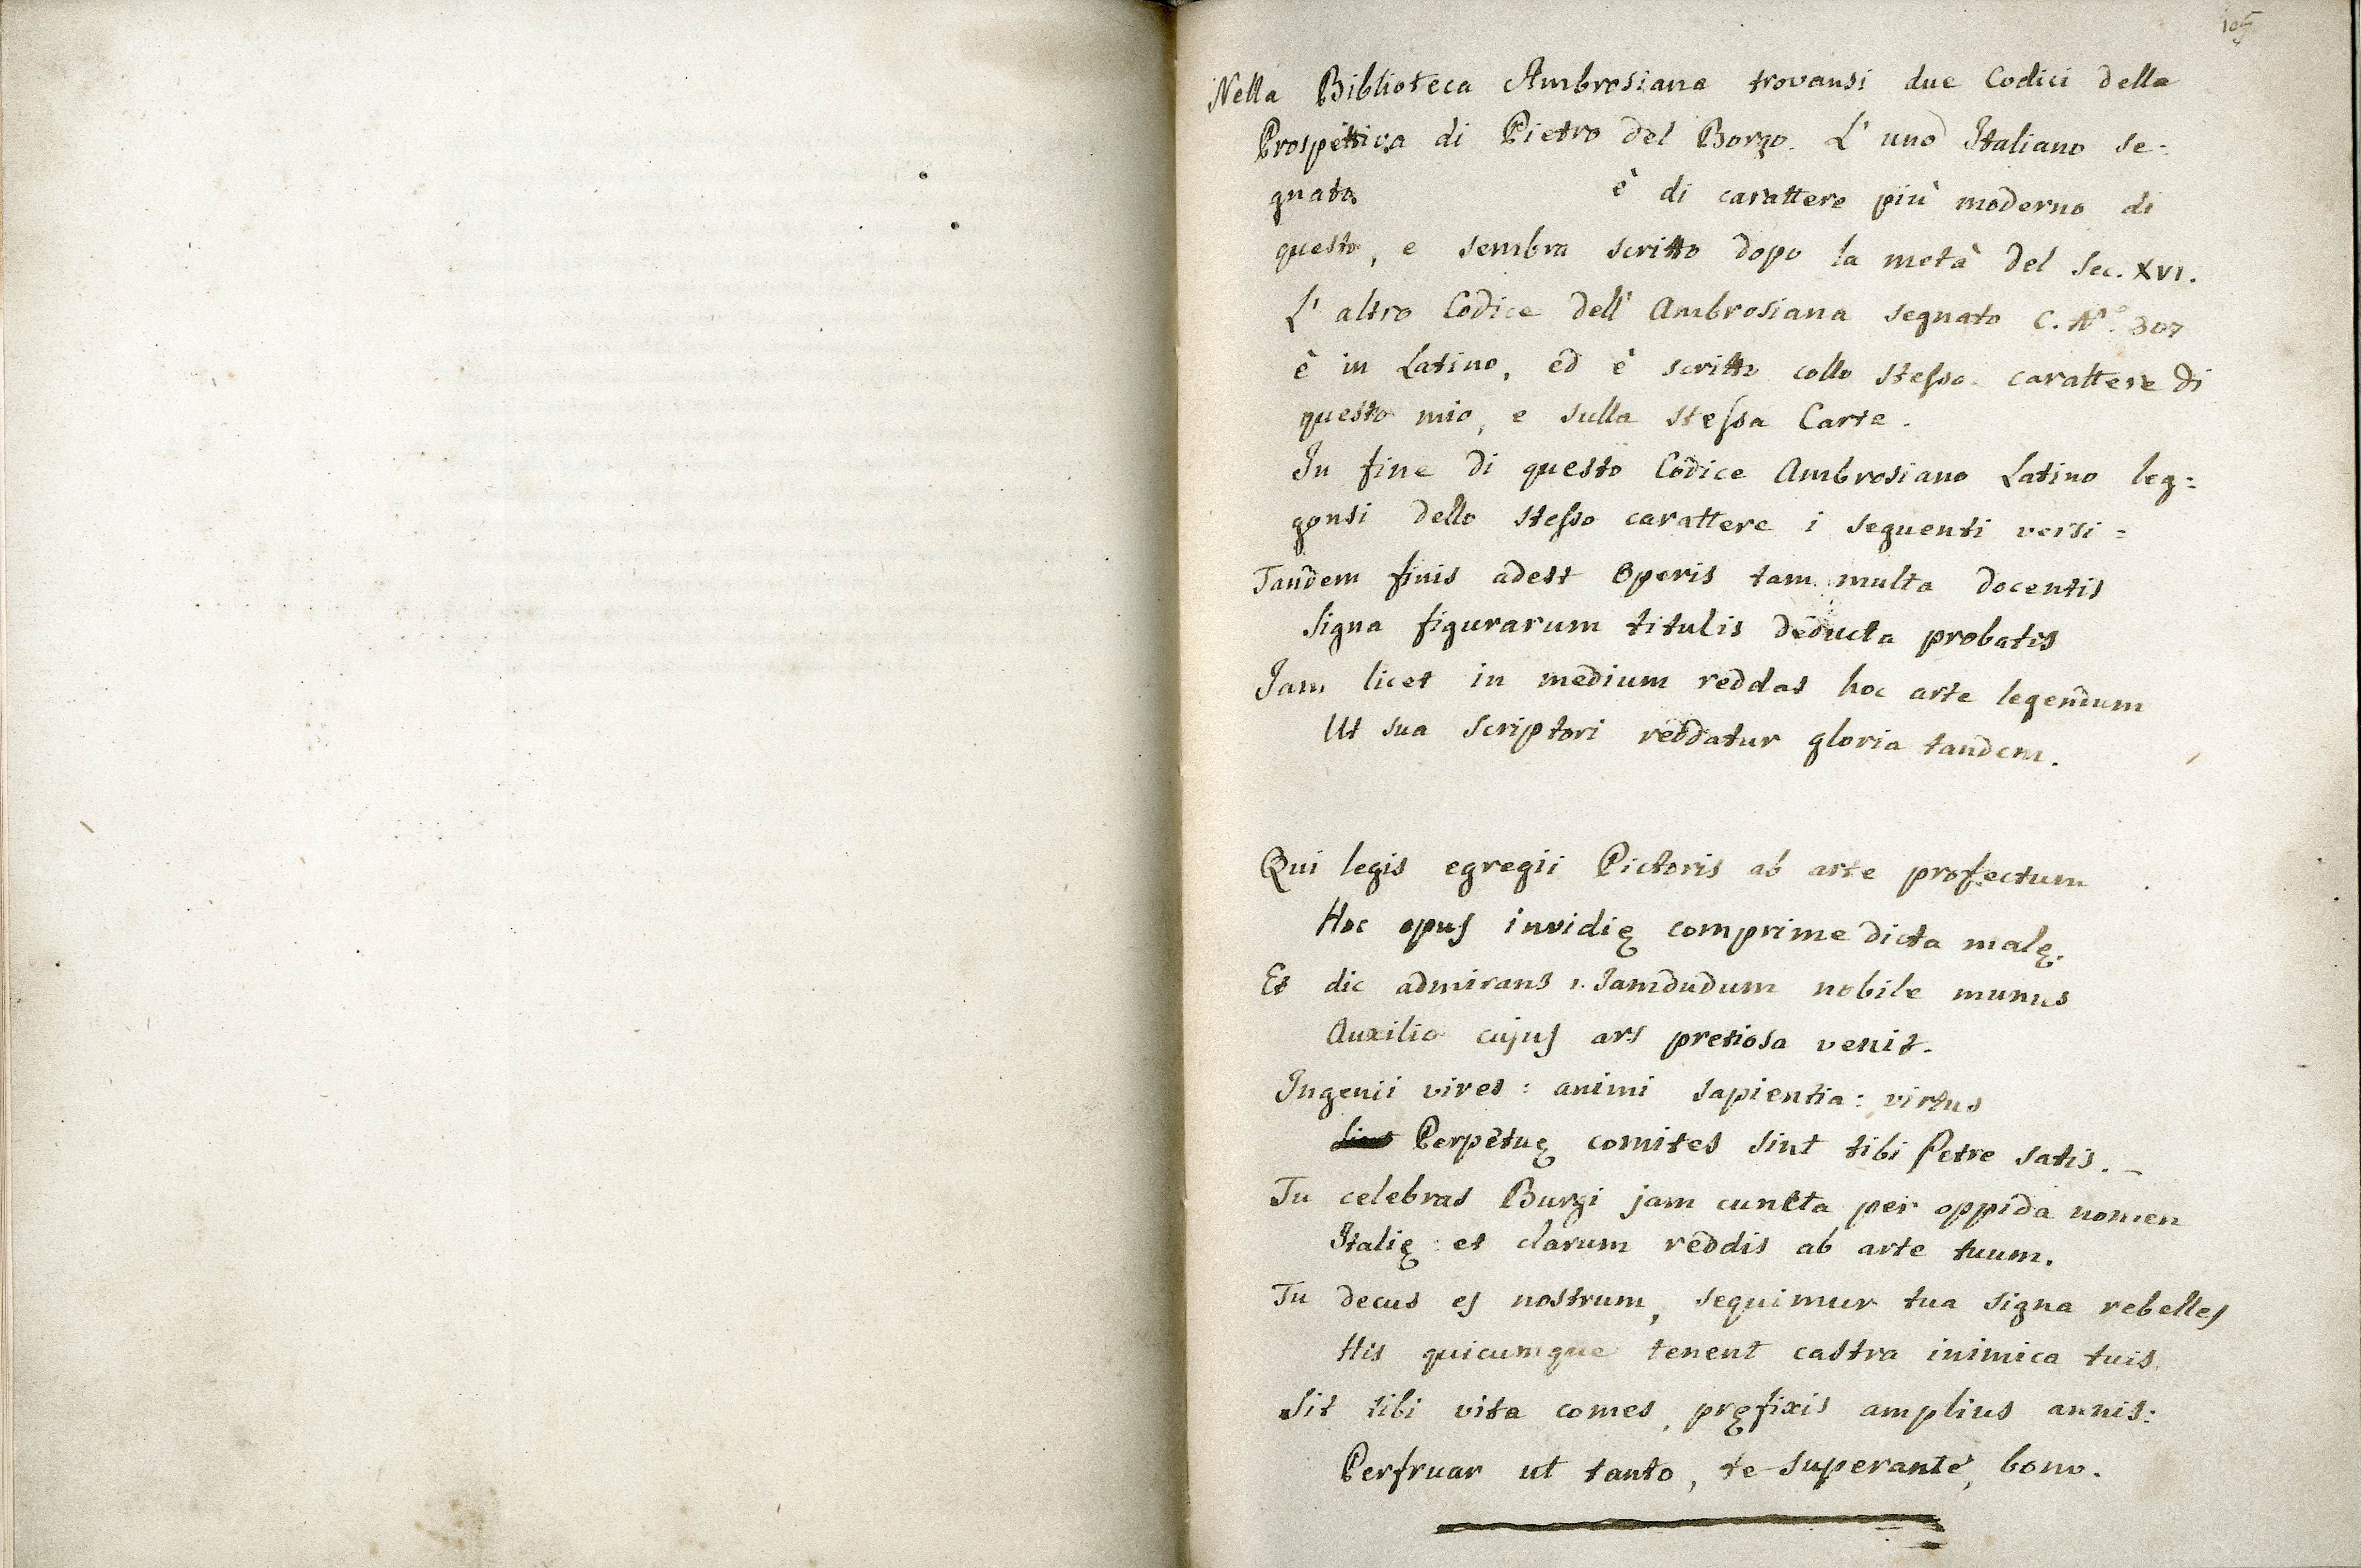 105
Nella Biblioteca Ambrosiana trovansi due Codici della
Prospettiva di Pietro del Borgo. L' uno Italiano se:
gnato è di carattere più moderno di
questo, e sembra scritto dopo la metà del Sec. XVI.
L' altro Codice dell' Ambrosiana segnato C. N.° 307
è in Latino, ed è scritto collo stesso carattere di
questo mio, e sulla stessa Carta.
In fine di questo Codice Ambrosiano Latino leg:
gonsi dello stesso carattere i seguenti versi =
Tandem finis adest Operis tam multa docentis
Signa figurarum titulis deducta probatis
Jam licet in medium reddas hoc arte legendum
Ut sua Scriptori reddatur gloria tandem.
Qui legis egregii Pictoris ab arte profectum
Hoc opus invidię comprime dicta malę.
Et dic admirans: Jamdudum nobile munus
Auxilio cujus ars pretiosa venit.
Ingenii vires: animi sapientia: virtus
Perpetuę comites sint tibi Petre satis. -
Tu celebras Burgi jam cuncta per oppida nomen
Italię: et clarum reddis ab arte tuum.
Tu decus es nostrum, sequimur tua signa rebelles
His quicumque tenent castra inimica tuis.
Sit tibi vita comes, pręfixis amplius annis:
Perfruar ut tanto, te superante, bono.